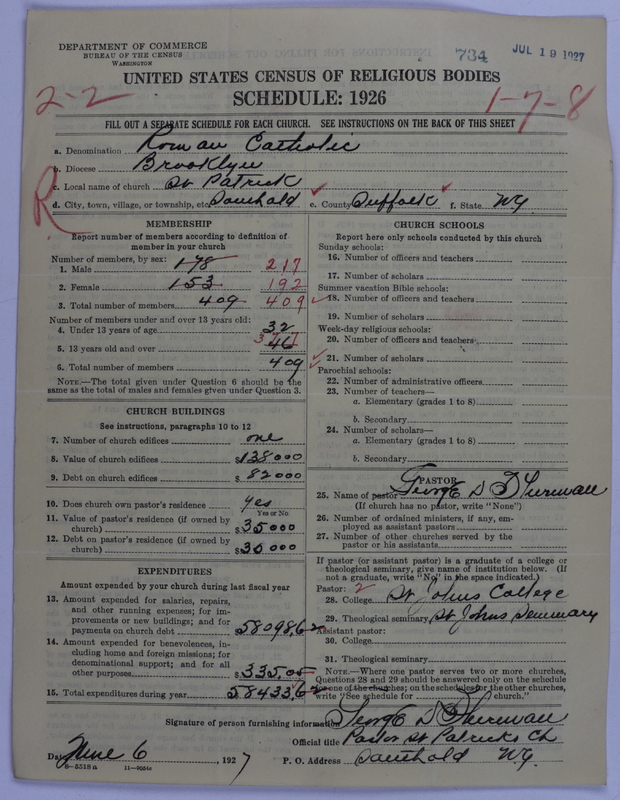 DEPARTMENT OF COMMERCE
BUREAU OF THE CENSUS
WASHINGTON
734
JUL 19 1927
UNITED STATES CENSUS OF RELIGIOUS BODIES
SCHEDULE: 1926
2-2
1-7-8
FILL OUT A SEPARATE SCHEDULE FOR EACH CHURCH. SEE INSTRUCTIONS ON THE BACK OF THIS SHEET
a. Denomination Roman Catholic
b. Diocese Brooklyn
c. Local name of church St Patrick
R
d. City, town, village, or township, etc. Southold e. County Suffolk f. State NY.
MEMBERSHIP
Report number of members according to definition of member in your church
Number of members, by sex:
1. Male 178 217
2. Female 153 192
3. Total number of members 409 409
Number of members under and over 13 years old:
4. Under 13 years of age 32
5. 13 years old and over 377
6. Total number of members 409
NOTE.—The total given under Question 6 should be the
same as the total of males and females given under Question 3.
CHURCH BUILDINGS
See instructions, paragraphs 10 to 12
7. Number of church edifices one
8. Value of church edifices $138000
9. Debt on church edifices $ 82000
10. Does church own pastor's residence yes
Yes or No
11. Value of pastor's residence (if owned by
church) $35000
12. Debt on pastor's residence (if owned by
church) $30000
EXPENDITURES
Amount expended by your church during last fiscal year
13. Amount expended for salaries, repairs,
and other running expenses; for im-
provements or new buildings; and for
payments on church debt 58098.62
14. Amount expended for benevolences, in-
cluding home and foreign missions; for
denominational support; and for all
other purposes $335.05
15. Total expenditures during year 58433.62
CHURCH SCHOOLS
Report here only schools conducted by this church
Sunday schools:
16. Number of officers and teachers
17. Number of scholars
Summer vacation Bible schools:
18. Number of officers and teachers
19. Number of scholars
Week-day religious schools:
20. Number of officers and teachers
21. Number of scholars
Parochial schools:
22. Number of administrative officers
23. Number of teachers—
a. Elementary (grades 1 to 8)
b. Secondary
24. Number of scholars—
a. Elementary (grades 1 to 8)
b. Secondary
PASTOR
25. Name of pastor George D
(If church has no pastor, write "None")
26. Number of ordained ministers, if any, em-
ployed as assistant pastors
27. Number of other churches served by the
pastor or his assistants
If pastor (or assistant pastor) is a graduate of a college or
theological seminary, give name of institution below. (If
not a graduate, write "No" in the space indicated.)
Pastor: 2
28. College St Johns College
29. Theological seminary St Johns Seminary
Assistant pastor:
30. College
31. Theological seminary
NOTE.—Where one pastor serves two or more churches,
Questions 28 and 29 should be answered only on the schedule
for one of the churches; on the schedules for the other churches,
write "See schedule for church."
Signature of person furnishing information George D
Official title Pastor St Patricks Ch
Date June 6, 1927
P. O. Address Southold NY.
8-5518a 11-9554